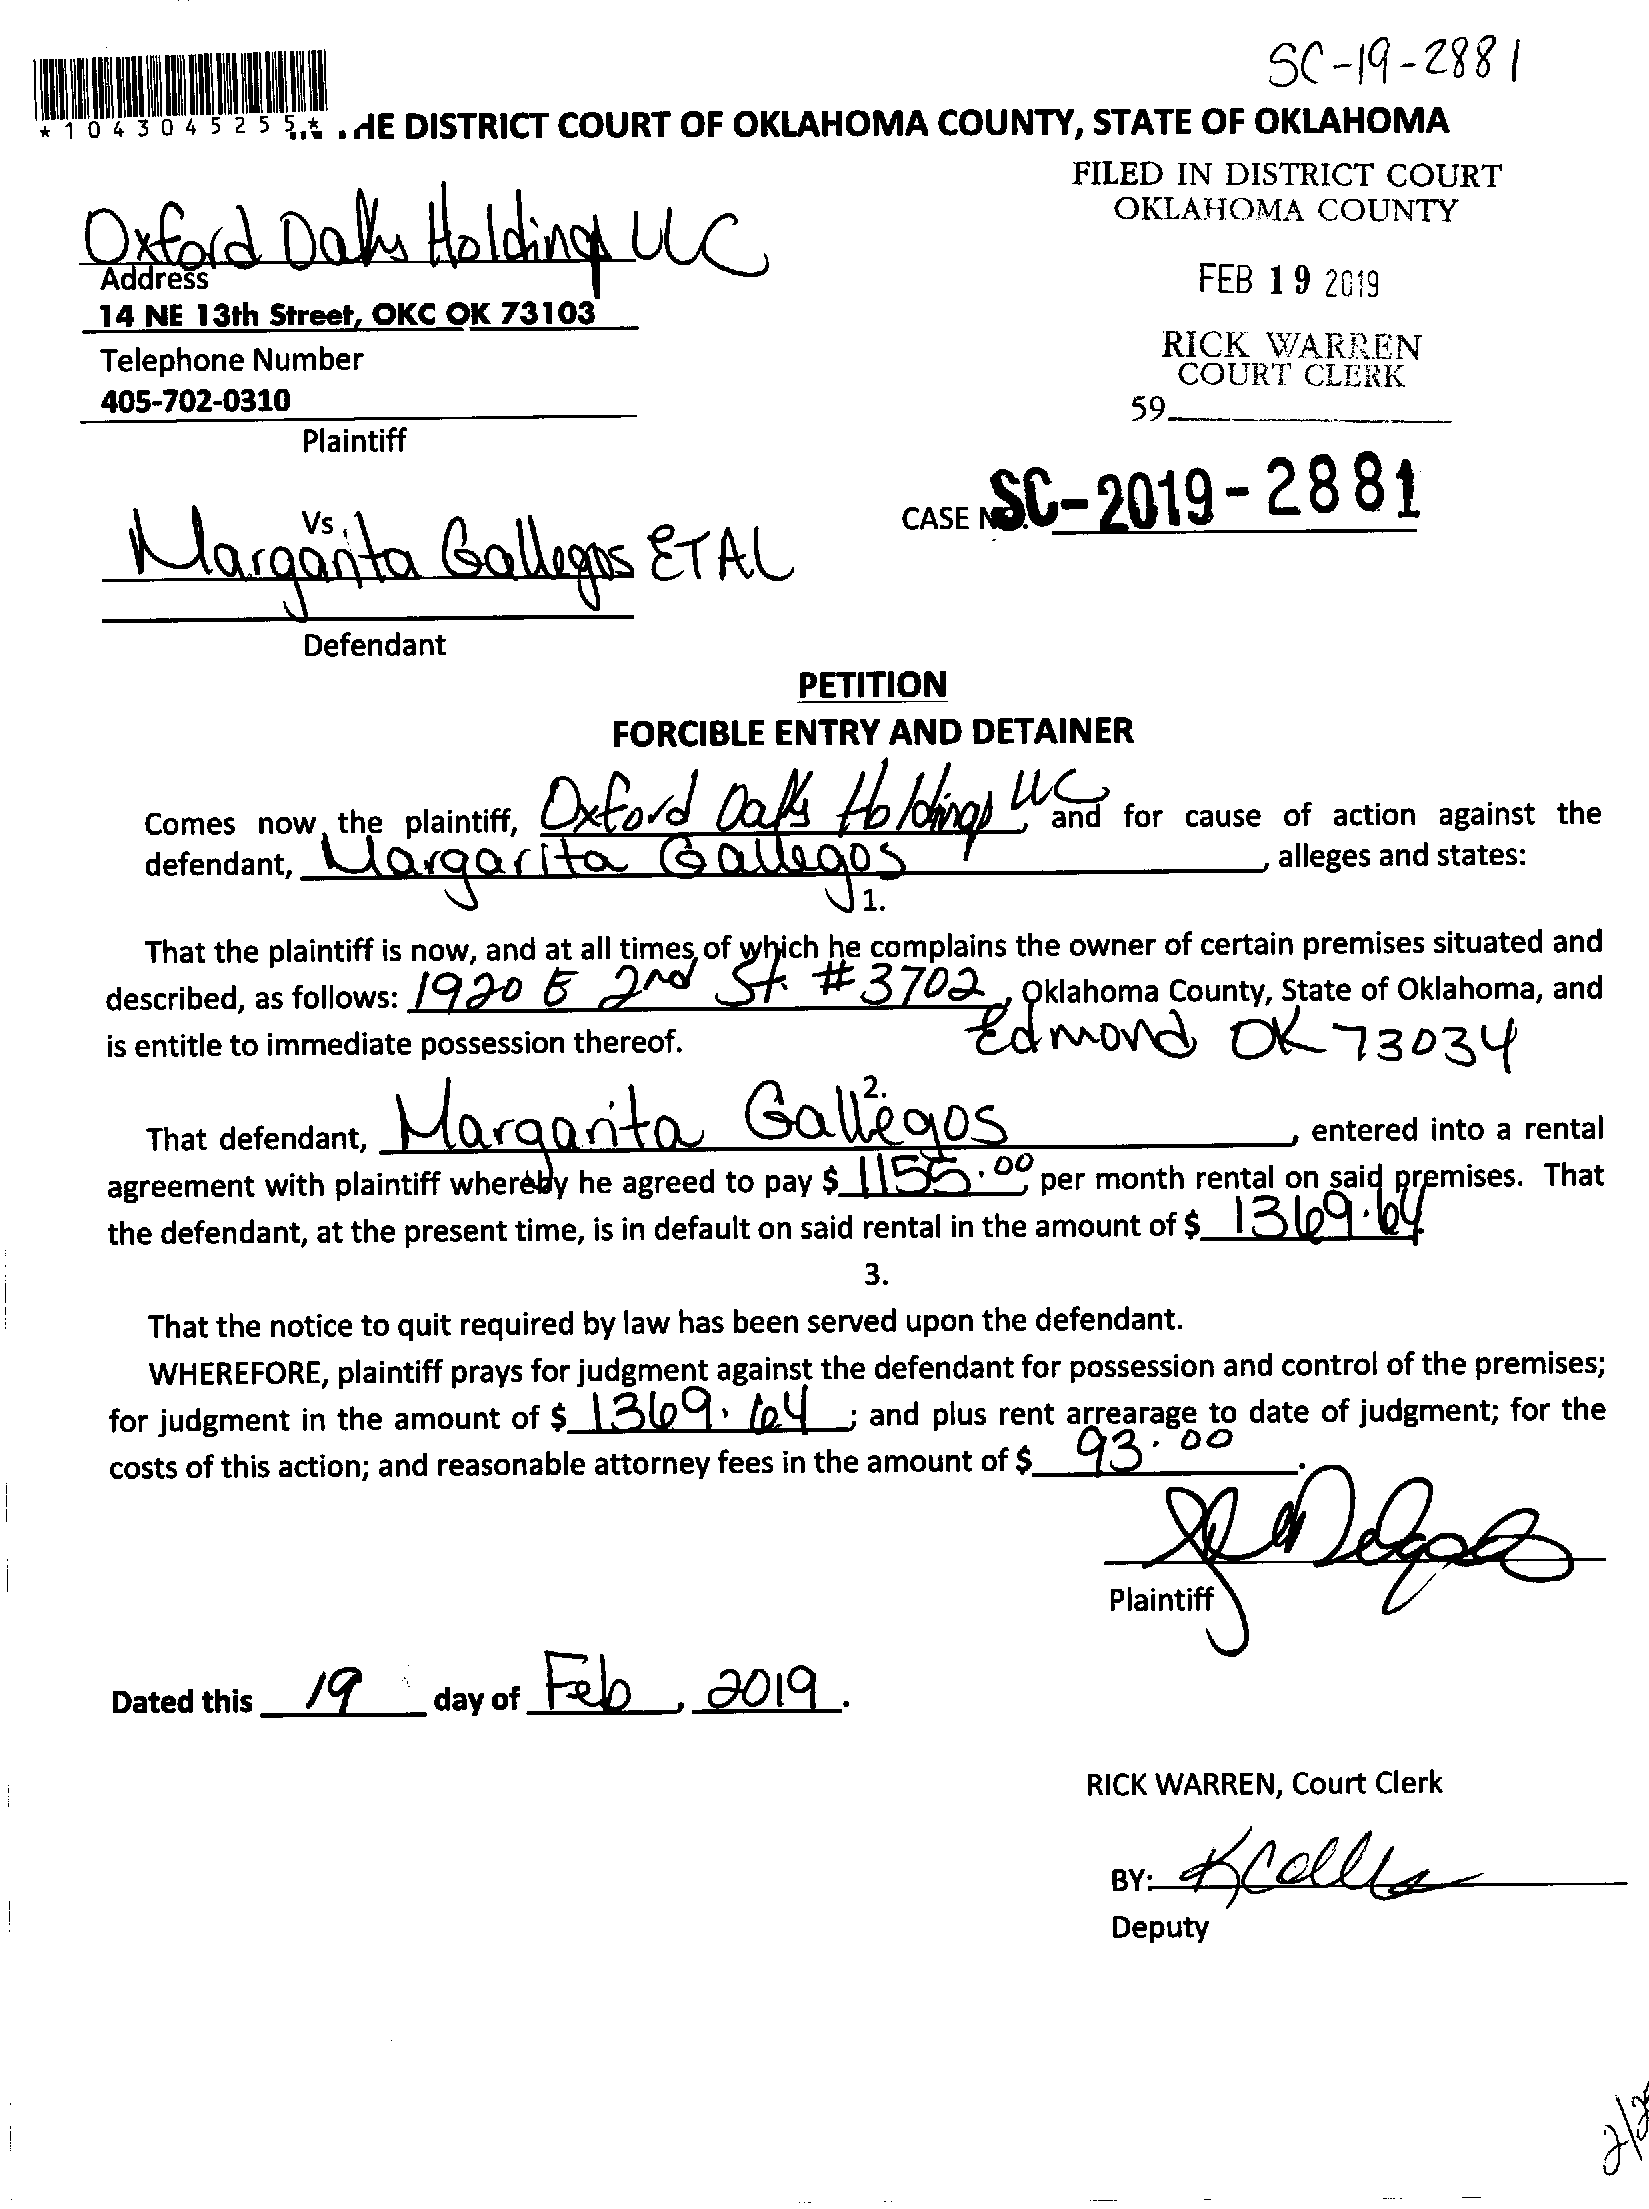 SC-19-2881
*1043045255* .HE DISTRICT COURT OF OKLAHOMA COUNTY, STATE OF OKLAHOMA
FILED IN DISTRICT COURT
OKLAHOMA COUNTY
FEB 19 2019
RICK WARREN
COURT CLERK
59
Oxford Oaks Holdings LLC
Address
14 NE 13th Street, OKC OK 73103
Telephone Number
405-702-0310
Plaintiff
CASE NO. SC-2019-2881
Vs.
Margarita Gallegos ETAL
Defendant
PETITION
FORCIBLE ENTRY AND DETAINER
Comes now the plaintiff, Oxford Oaks Holdings LLC, and for cause of action against the
defendant, Margarita Gallegos, alleges and states:
1.
That the plaintiff is now, and at all times of which he complains the owner of certain premises situated and
described, as follows: 1920 E 2nd St. #3702, Oklahoma County, State of Oklahoma, and
is entitle to immediate possession thereof. Edmond OK 73034
2.
That defendant, Margarita Gallegos, entered into a rental
agreement with plaintiff whereby he agreed to pay $ 1155.00 per month rental on said premises. That
the defendant, at the present time, is in default on said rental in the amount of $ 1369.64
3.
That the notice to quit required by law has been served upon the defendant.
WHEREFORE, plaintiff prays for judgment against the defendant for possession and control of the premises;
for judgment in the amount of $ 1369.64; and plus rent arrearage to date of judgment; for the
costs of this action; and reasonable attorney fees in the amount of $ 93.00.
Plaintiff
Dated this 19 day of Feb, 2019.
RICK WARREN, Court Clerk
BY:
Deputy